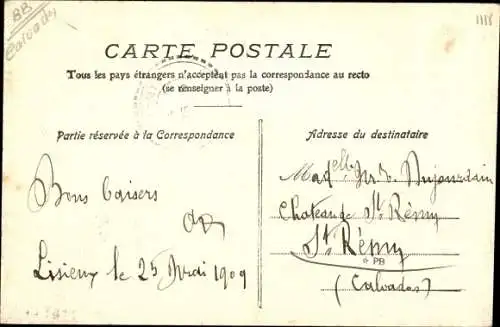 BB
Calvados
1118
CARTE POSTALE
Tous les pays étrangers n'acceptent pas la correspondance au recto
(se renseigner à la poste)
Partie réservée à la Correspondance
Adresse du destinataire
Bons baisers
Lisieux le 25 Mai 1909
Madelle
Chateau de St Rémy
St Rémy
* PB
(Calvados)